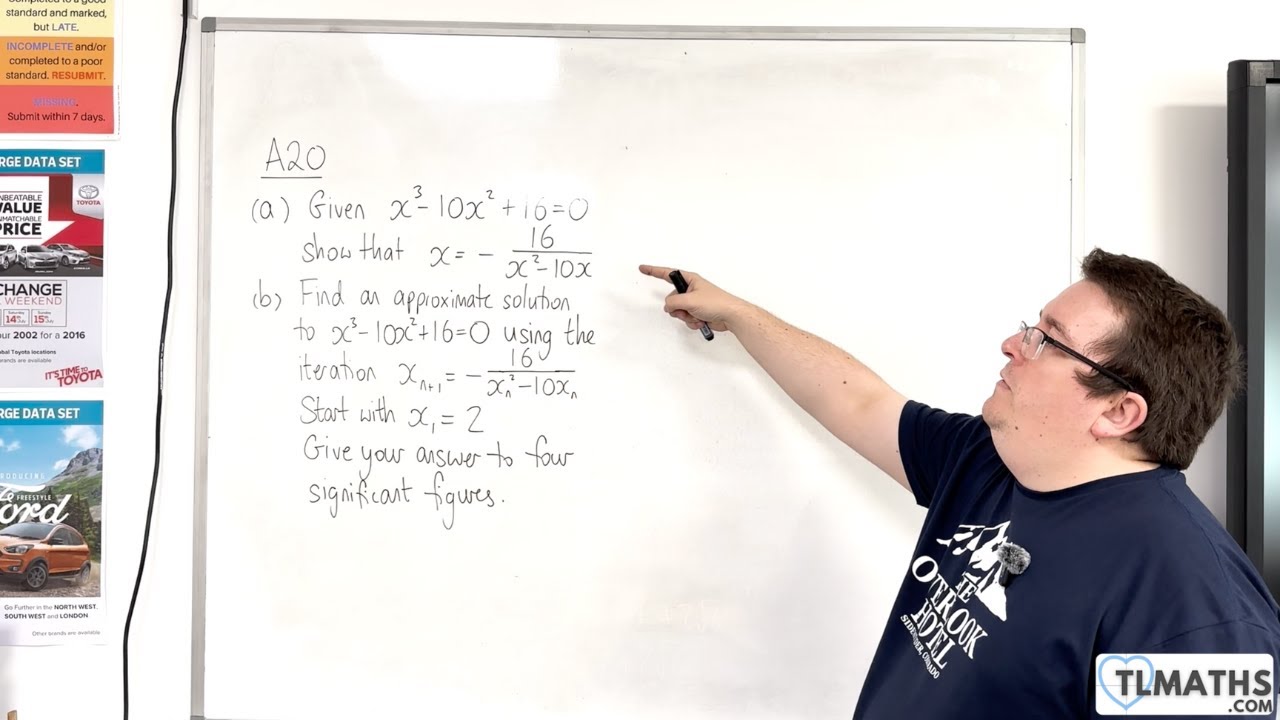 Completed to a good
standard and marked,
but LATE.
INCOMPLETE and/or
completed to a poor
standard. RESUBMIT.
MISSING.
Submit within 7 days.
RGE DATA SET
NBEATABLE
VALUE
NMATCHABLE
PRICE
TOYOTA
CHANGE
WEEKEND
Saturday
14th
July
Sunday
15th
July
our 2002 for a 2016
Toyota locations
brands are available
IT'S TIME to
TOYOTA
RGE DATA SET
RODUCING
FREESTYLE
ord
Go Further in the NORTH WEST,
SOUTH WEST and LONDON
Other brands are available
A20
(a) Given x³-10x²+16=0
show that x = - 16/(x²-10x)
(b) Find an approximate solution
to x³-10x²+16=0 using the
iteration xₙ₊₁ = - 16/(xₙ²-10xₙ)
Start with x₁ = 2
Give your answer to four
significant figures.
THE
OVERLOOK
HOTEL
SIDEWINDER, COLORADO
TLMATHS
.COM